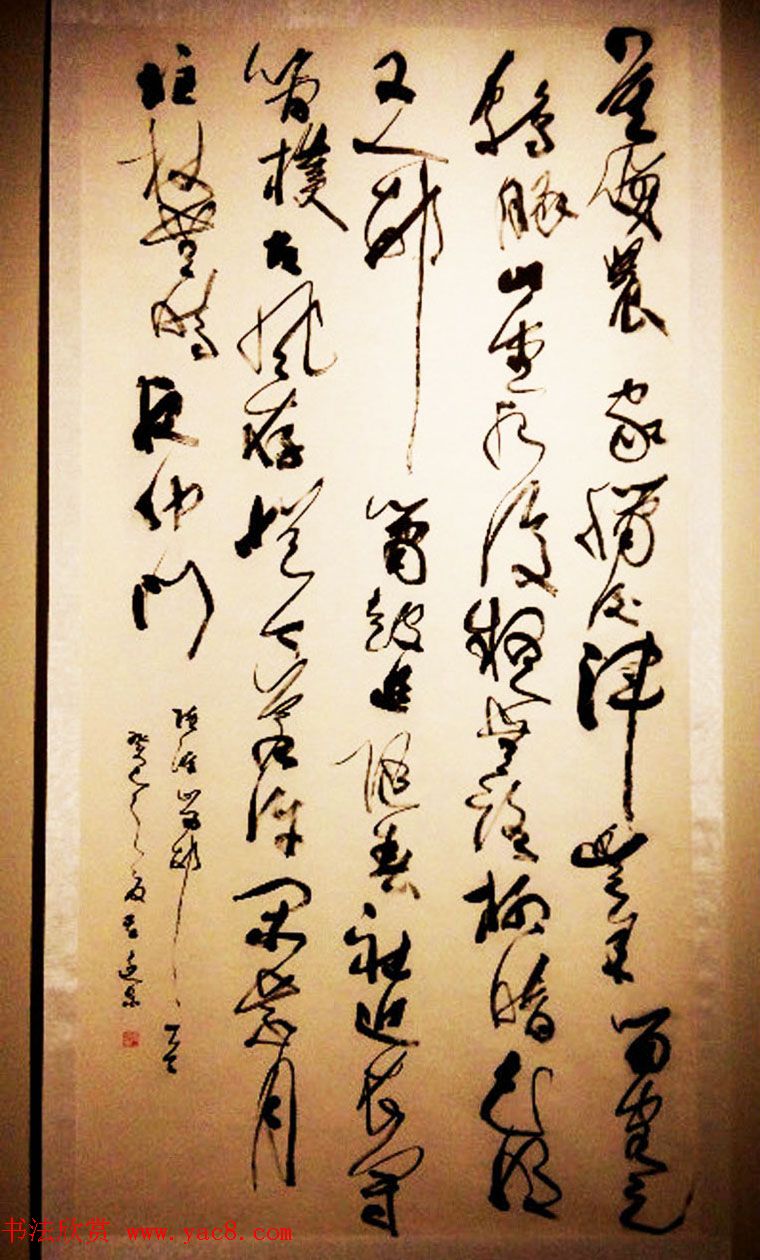 莫笑農家臘酒渾豐年留客足
鷄豚山重水複疑無路柳暗花明
又一邨簫鼓追隨春社近衣冠
簡樸古風存從今若許閑乘月
拄杖無時夜叩門
陸游
癸巳之夏
书法欣赏 www.yac8.com